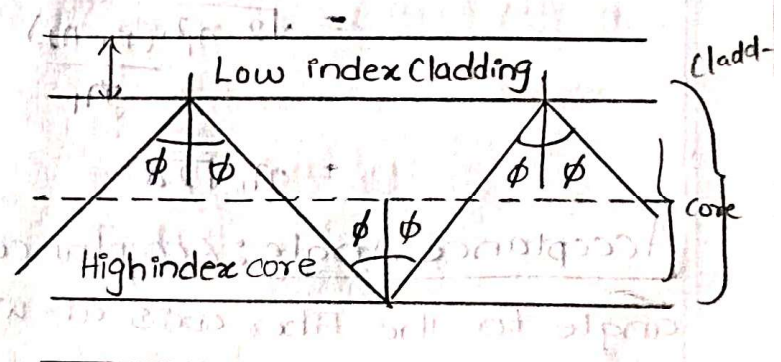 Low index Cladding
Cladd-
ϕ ϕ ϕ ϕ
ϕ ϕ
core
High index core